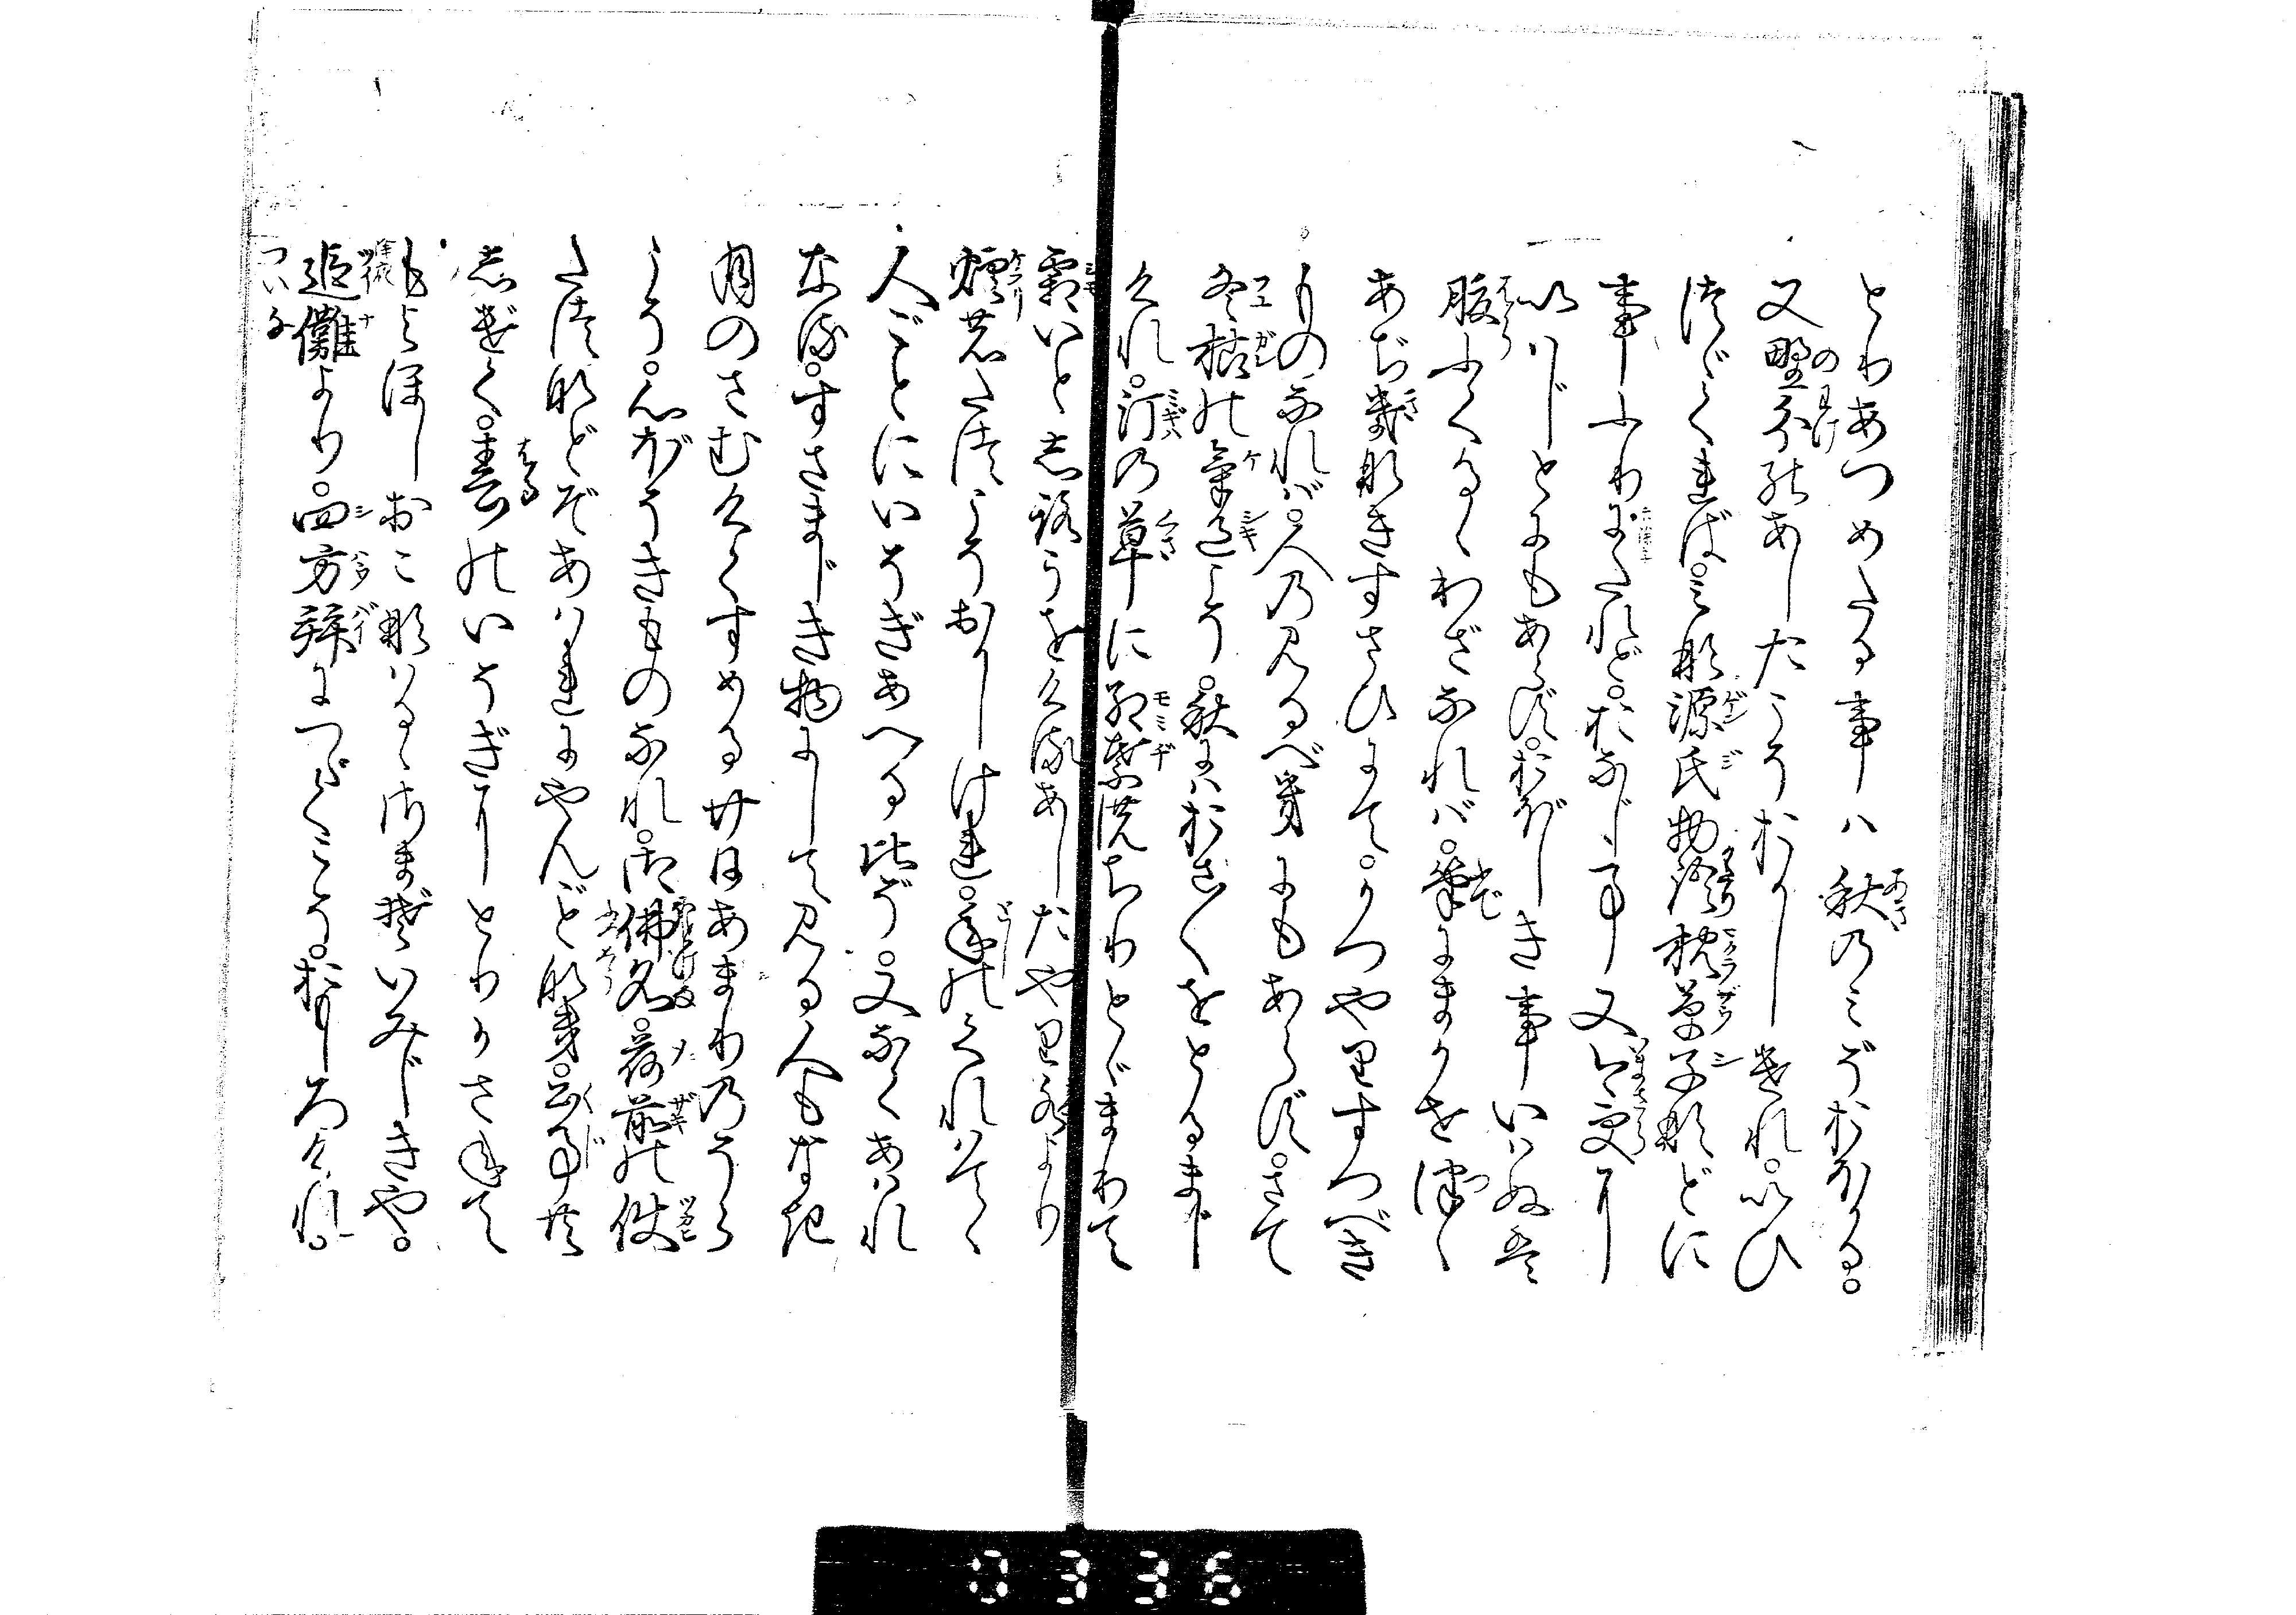 とりあつめたる事ハ秋のみぞおほかる。
又野分のあしたこそおかしけれ。いひ
つゞくれば。みな源氏物語枕草子などに
事ふりにたれど。おなじ事又今更に
いハじとにもあらず。おぼしき事いハぬは
腹ふくるゝわざなれバ。筆にまかせつゝ
あぢきなきすさひにて。かつやりすつべき
ものなれバ。人の見るべきにもあらず。さて
冬枯の氣色こそ。秋にハおさ〳〵をとるまじ
けれ。汀の草に紅葉のちりとゞまりて
霜いとしろうをけるあした。やり水より
煙のたつこそおかしけれ。年のくれハてゝ
人ごとにいそぎあへる比ぞ。又なくあハれ
なる。すさまじき物にして見る人もなき
月のさむけくすめる廿日あまりのそら
こそ。心ぼそきものなれ。御佛名。荷前の使
たつなどぞあハれにやんごとなき。公事共
しげく。春のいそぎにとりかさねて
もよほしおこなハるゝさまぞいみじきや。
追儺より。四方拜につゞくこそ。おもしろけれ。
ついな